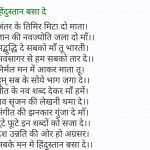 हिंदुस्तान बसा दे
अंतर के तिमिर मिटा दो माता।
ज्ञान की नवज्योति जला दो माँ।।
सद्बुद्धि दे सबको माँ तू भारती।
भवसागर से हम सबको तार दे।।
निर्मल मन में आकर माता तू।
सब के सोये भाग जगा दे।।
गीत के नव शब्द देकर माँ हमें।
नव सृजन की लेखनी थमा दे।।
संगीत की झनकार गुंजा दे माँ।
टूटे फूटे इन शब्दों को सजा दे।।
देश उन्नति की ओर हो अग्रसर।
सबके मन मे हिंदुस्तान बसा दे।।